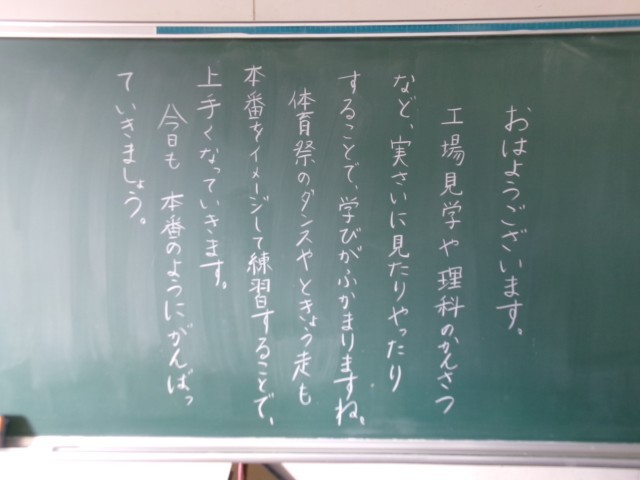 おはようございます。
工場見学や理科のかんさつ
など、実さいに見たりやったり
することで、学びがふかまりますね。
体育祭のダンスやときょう走も
本番をイメージして練習することで、
上手くなっていきます。
今日も本番のようにがんばっ
ていきましょう。